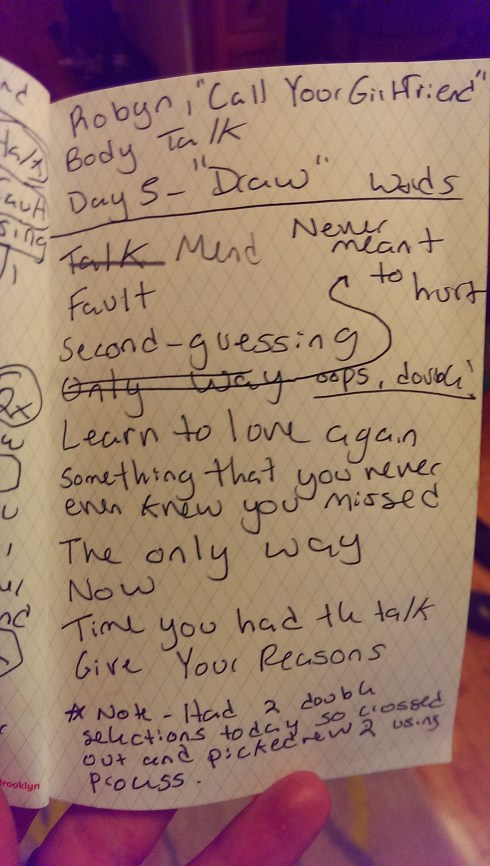 Robyn, "Call Your Girlfriend"
Body Talk
Day 5 - "Draw" Words
Talk Mend
Never
meant
to hurt
Fault
Second-guessing
Only way oops, double!
Learn to love again
Something that you never
even knew you missed
The only way
Now
Time you had the talk
Give Your Reasons
* Note - Had 2 double
selections today so crossed
out and picked new 2 using
process.
talk
ault
sing
2x
Brooklyn